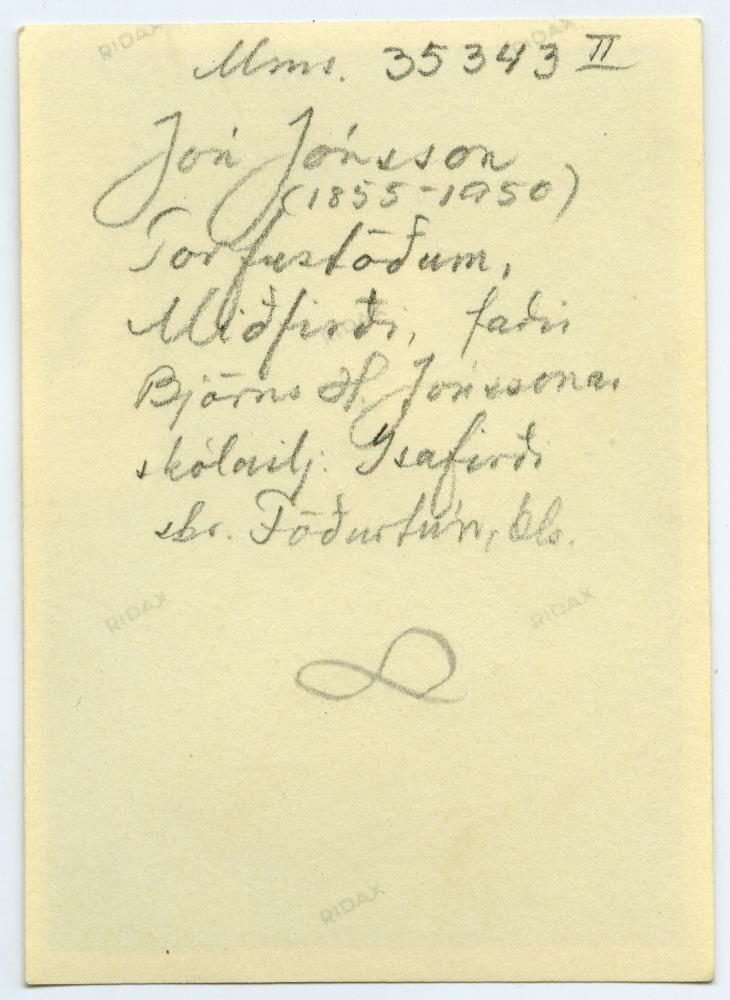 Mms. 35343 II
Jón Jónsson
(1855-1950)
Torfustöðum,
Miðfirði, faðir
Björns H. Jónssonar
skólastj. Ísafirði
sbr. Föðurtún, bls.
RIDAX
RIDAX
RIDAX
RIDAX